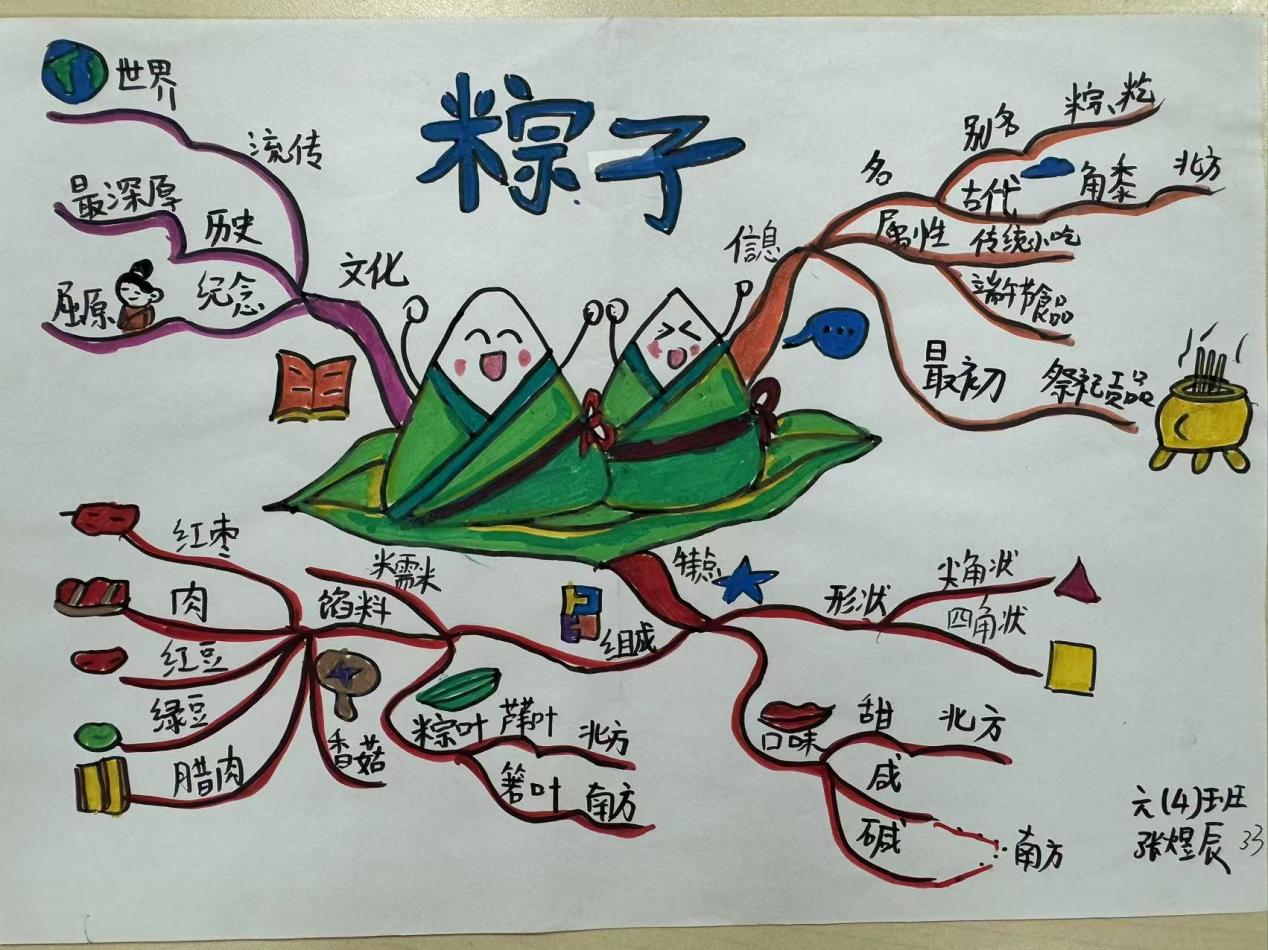 粽子
世界
流传
最深厚
历史
屈原
纪念
文化
信息
名
别名
粽、粽
古代
角黍
北方
属性
传统小吃
端午节食品
最初
祭祀贡品
特点
形状
尖角状
四角状
口味
甜
北方
咸
碱
南方
组成
糯米
馅料
红枣
肉
红豆
绿豆
腊肉
香菇
粽叶
芦苇叶
北方
箬叶
南方
六(4)班
张煜辰 33